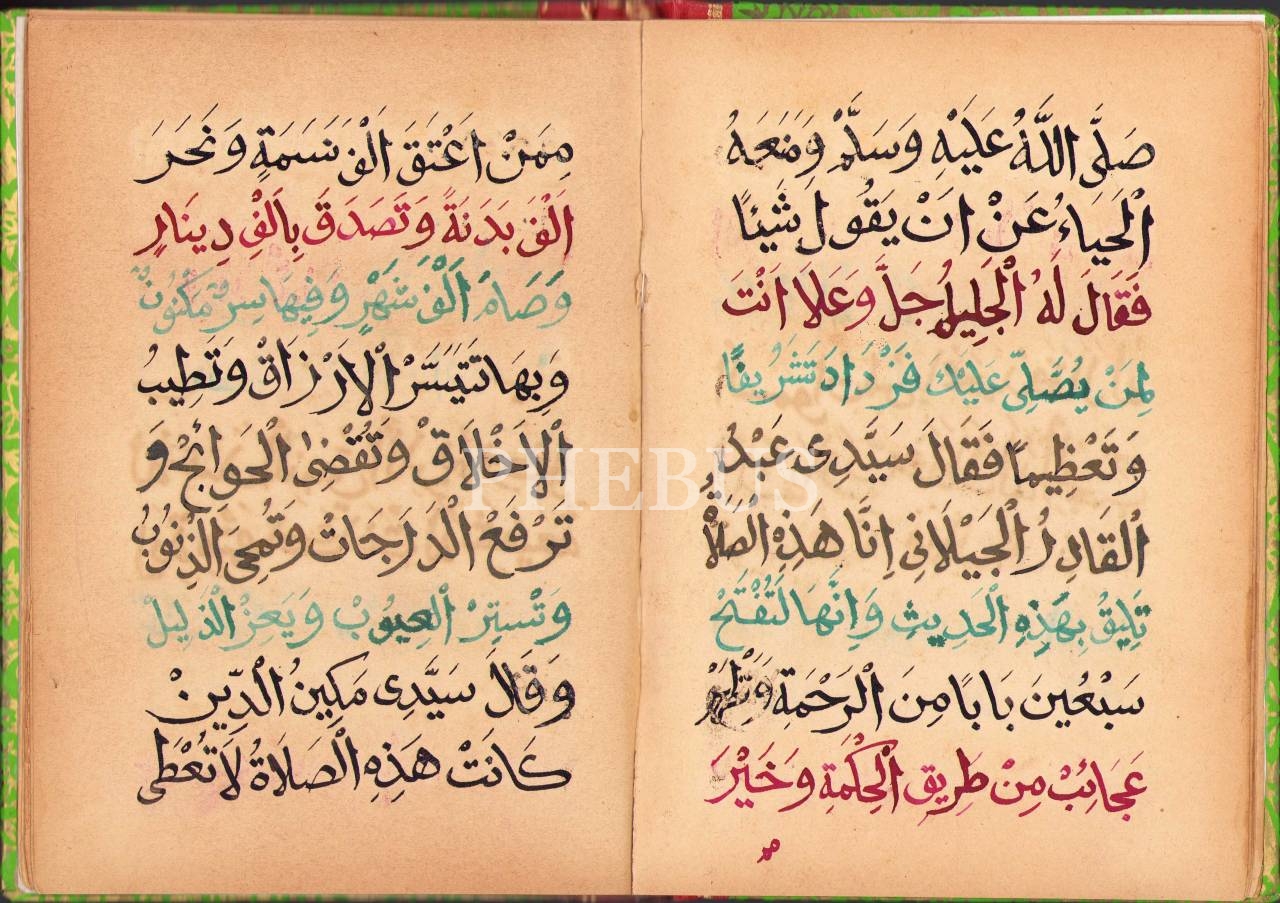 صَلَّى اللَّهُ عَلَيْهِ وَسَلَّمْ وَمَنَعَهُ
الْحَيَاءُ عَنْ اَنْ يَقُولِ شَيْئًا
فَقَالَ لَهُ الْجَلِيلُ جَلَّ وَعَلَا اَنْتَ
لِمَنْ يُصَّلِى عَلَيْكَ فَزْدَادَ تَشَرُيفًا
وَتَعْظِيمًا فَقَالَ سَيَّدِى عَبْدُ
الْقَادِرُ الْجَيْلَانِى اِنَّا هَذِهِ الْصَلَاةُ
تَلِيقُ بِهَذِهِ الْحَدِيثِ وَاِنَّهَا لَتُفْتَحْ
سَبْعُينَ بَابًا مِنَ الْرَحْمَةِ وَتُظْهِرْ
عَجَائِبْ مِنْ طَرِيقِ الْحِكْمَةِ وَخَيْرَ
مِمَنْ اَعْتَقَ اَلْفَ نَسَمَةٍ وَنَحَرَ
اَلْفَ بَدَنَةً وَتَصَدَقَ بِاَلْفِ دِينَارٍ
وَصَامَ اَلْفَ شَهْرٍ وَفِيهَا سِرٌ مَكْنُونٌ
وَبِهَا تَتَيَسَّرْ الْاَرْزَاقْ وَتَطِيبُ
الْاَخْلَاقْ وَتُقْضٰى الْحَوِائِجْ وَ
تَرْفَعْ الْدَرَجَاتْ وَتُمْحَى الذُنُوبُ
وَتْسْتِرْ الْعِيُوبْ وَيَعِزُ الْذَلِيلْ
وَقَلَا سَيَّدِى مَكِينُ الْدِّينْ
كَانَتْ هَذِهِ الْصَلَاةُ لَا تُعْطَى
PHEBUS